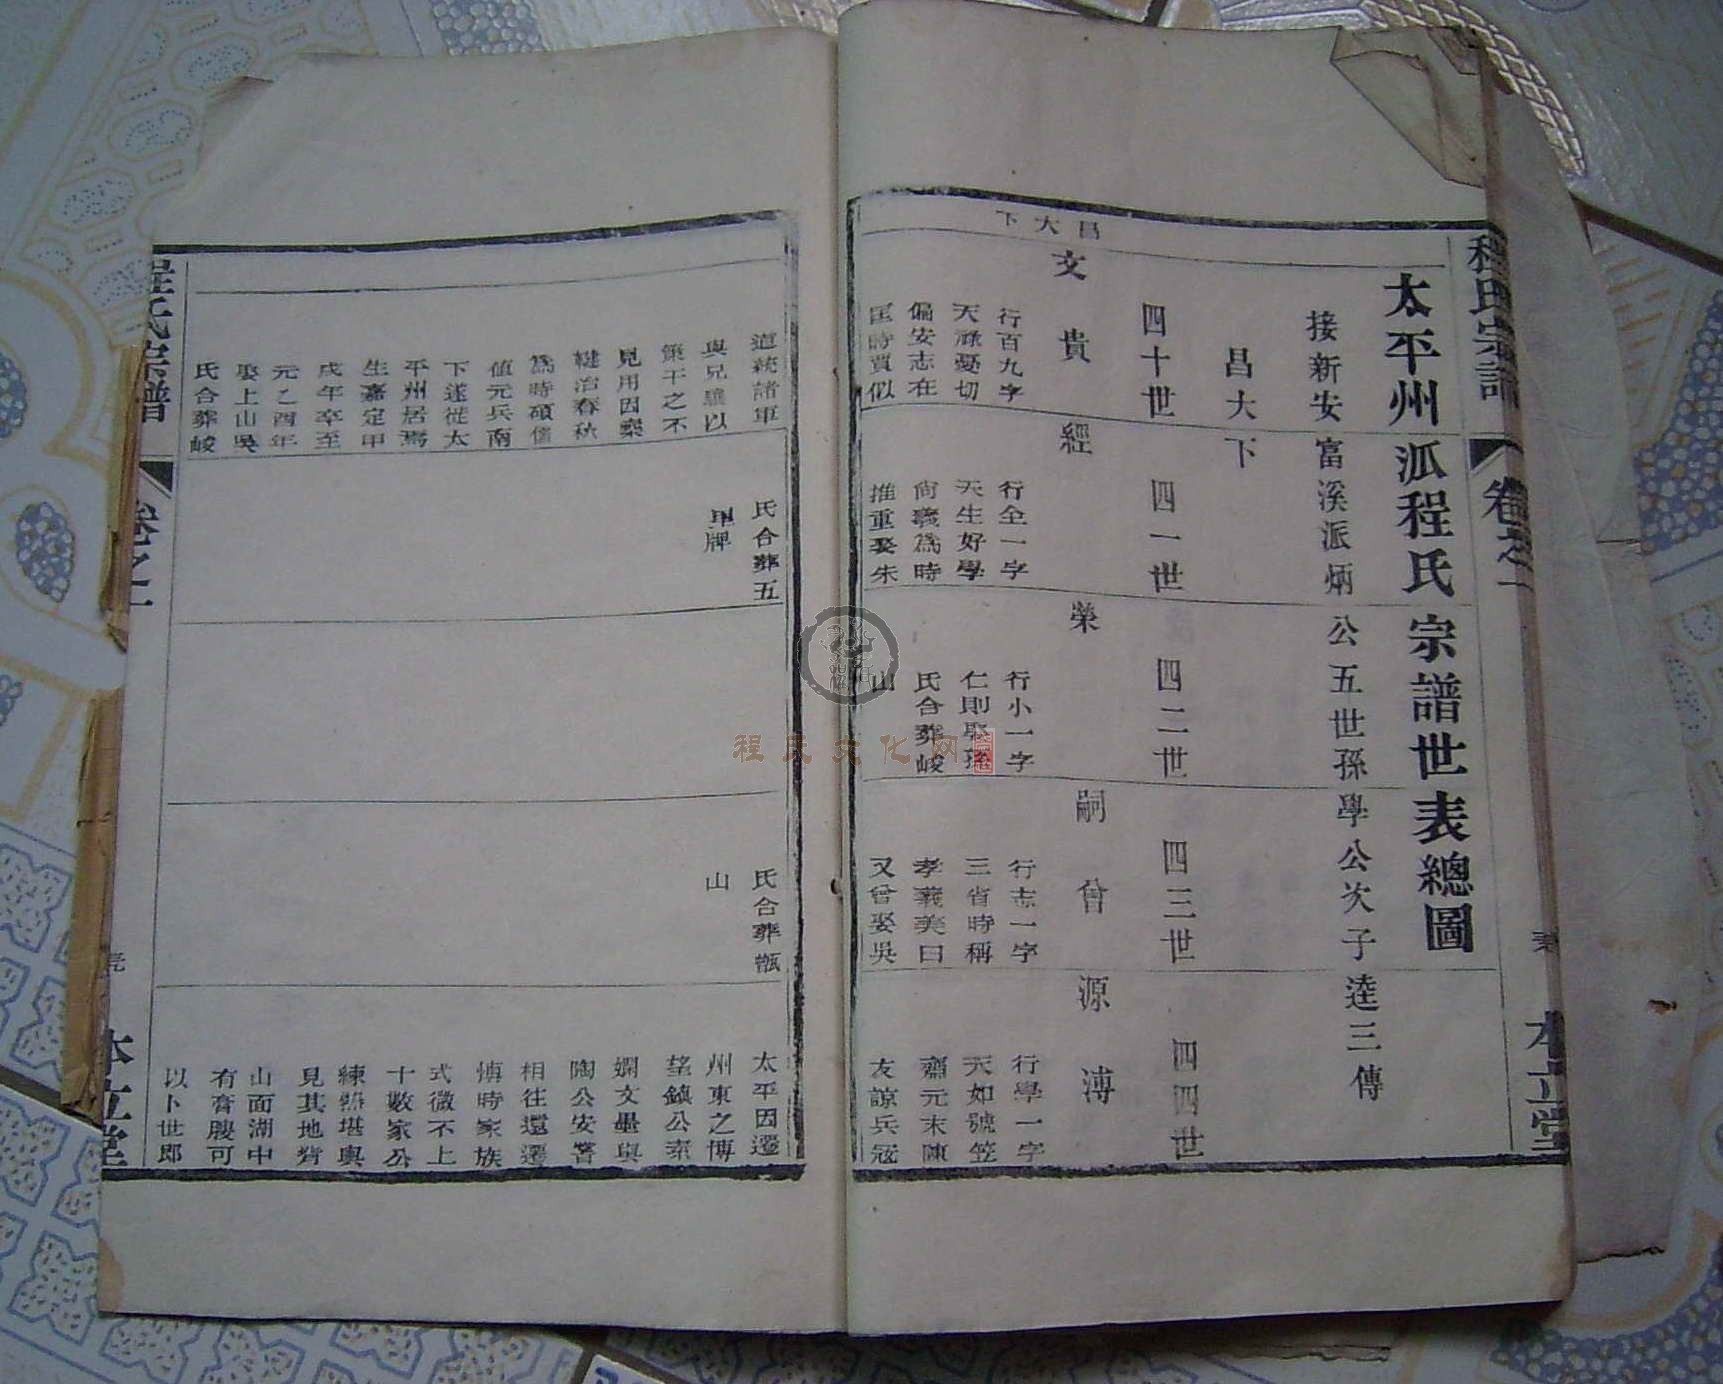 程氏宗譜
卷之一
本立堂
太平州派程氏宗譜世表總圖
接新安富溪派炳公五世孫學公次子逵三傳
昌大下
四十世
四一世
四二世
四三世
四四世
昌大下
文貴
行百九字
天祿憂切
偏安志在
匡時賈似
道統諸軍
與兄驥以
策干之不
見用因棄
鞬治春秋
為時碩儒
值元兵南
下遂徙太
平州居焉
生嘉定甲
戌年卒至
元乙酉年
娶上山吳
氏合葬峻
經
行全一字
天生好學
尚義為時
推重娶朱
氏合葬五
里牌
榮
行小一字
仁則娶孫
氏合葬峻
山
嗣曾
行志一字
三省時稱
孝義美曰
又曾娶吳
氏合葬甑
山
源溥
行學一字
天如號笠
齋元末陳
友諒兵寇
太平因遷
州東之博
望鎮公素
嫻文墨與
陶公安警
相往還遷
博時家族
式微不上
十數家公
練習堪輿
見其地背
山面湖中
有膏腴可
以卜世郎
程氏宗譜
卷之一
本立堂
程氏文化网